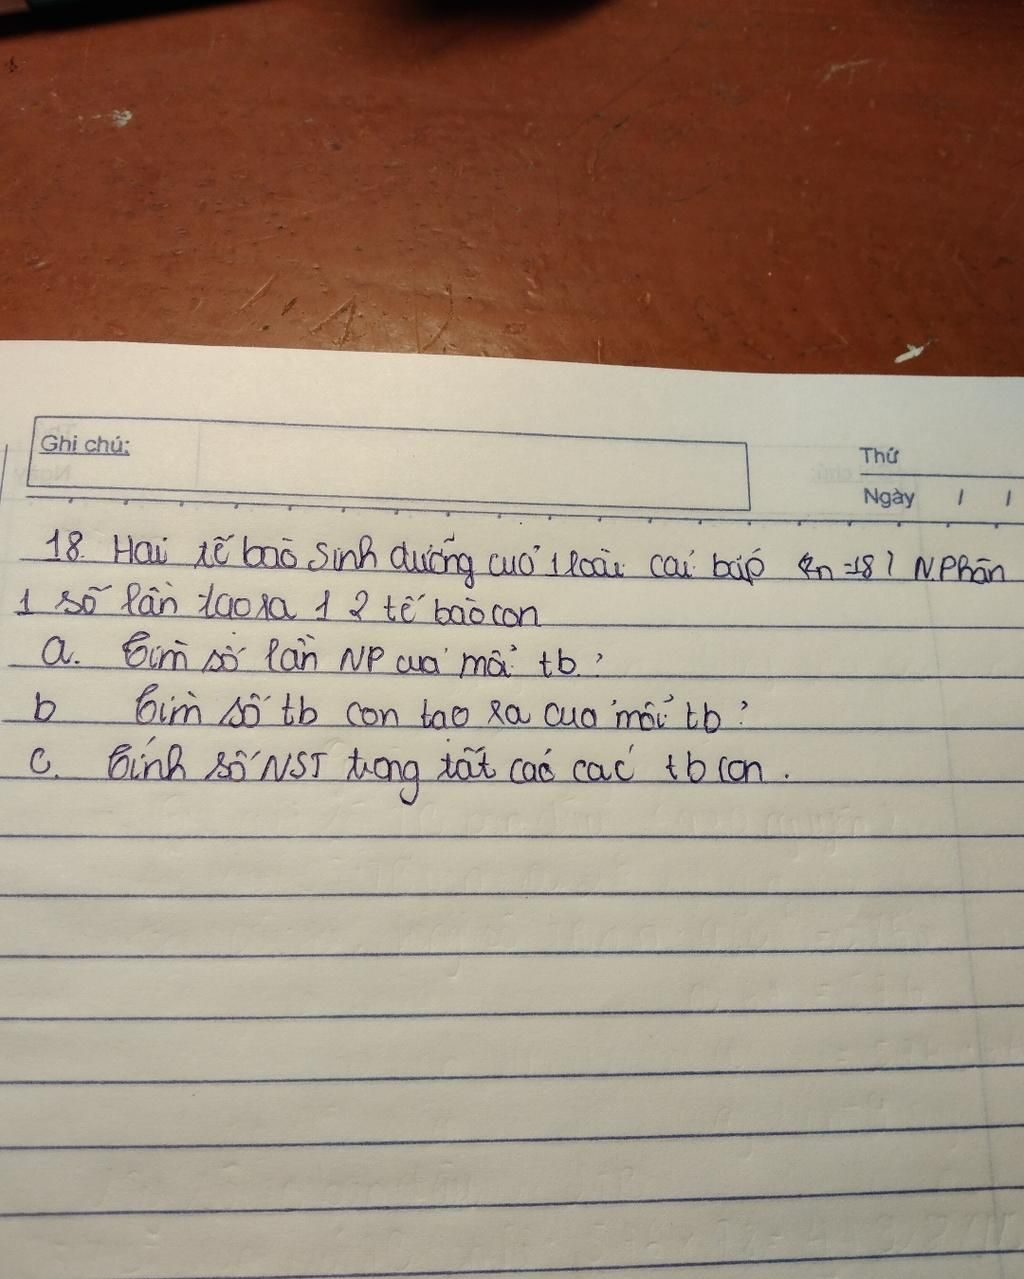 Ghi chú:
Thứ
Ngày / /
18. Hai tế bào sinh dưỡng của 1 loài cải bắp (2n=18) N.Phân
1 số lần tạo ra 12 tế bào con
a. Tìm số lần NP của mỗi tb?
b Tìm số tb con tạo ra của mỗi tb?
c. Tính số NST trong tất cả các tb con.